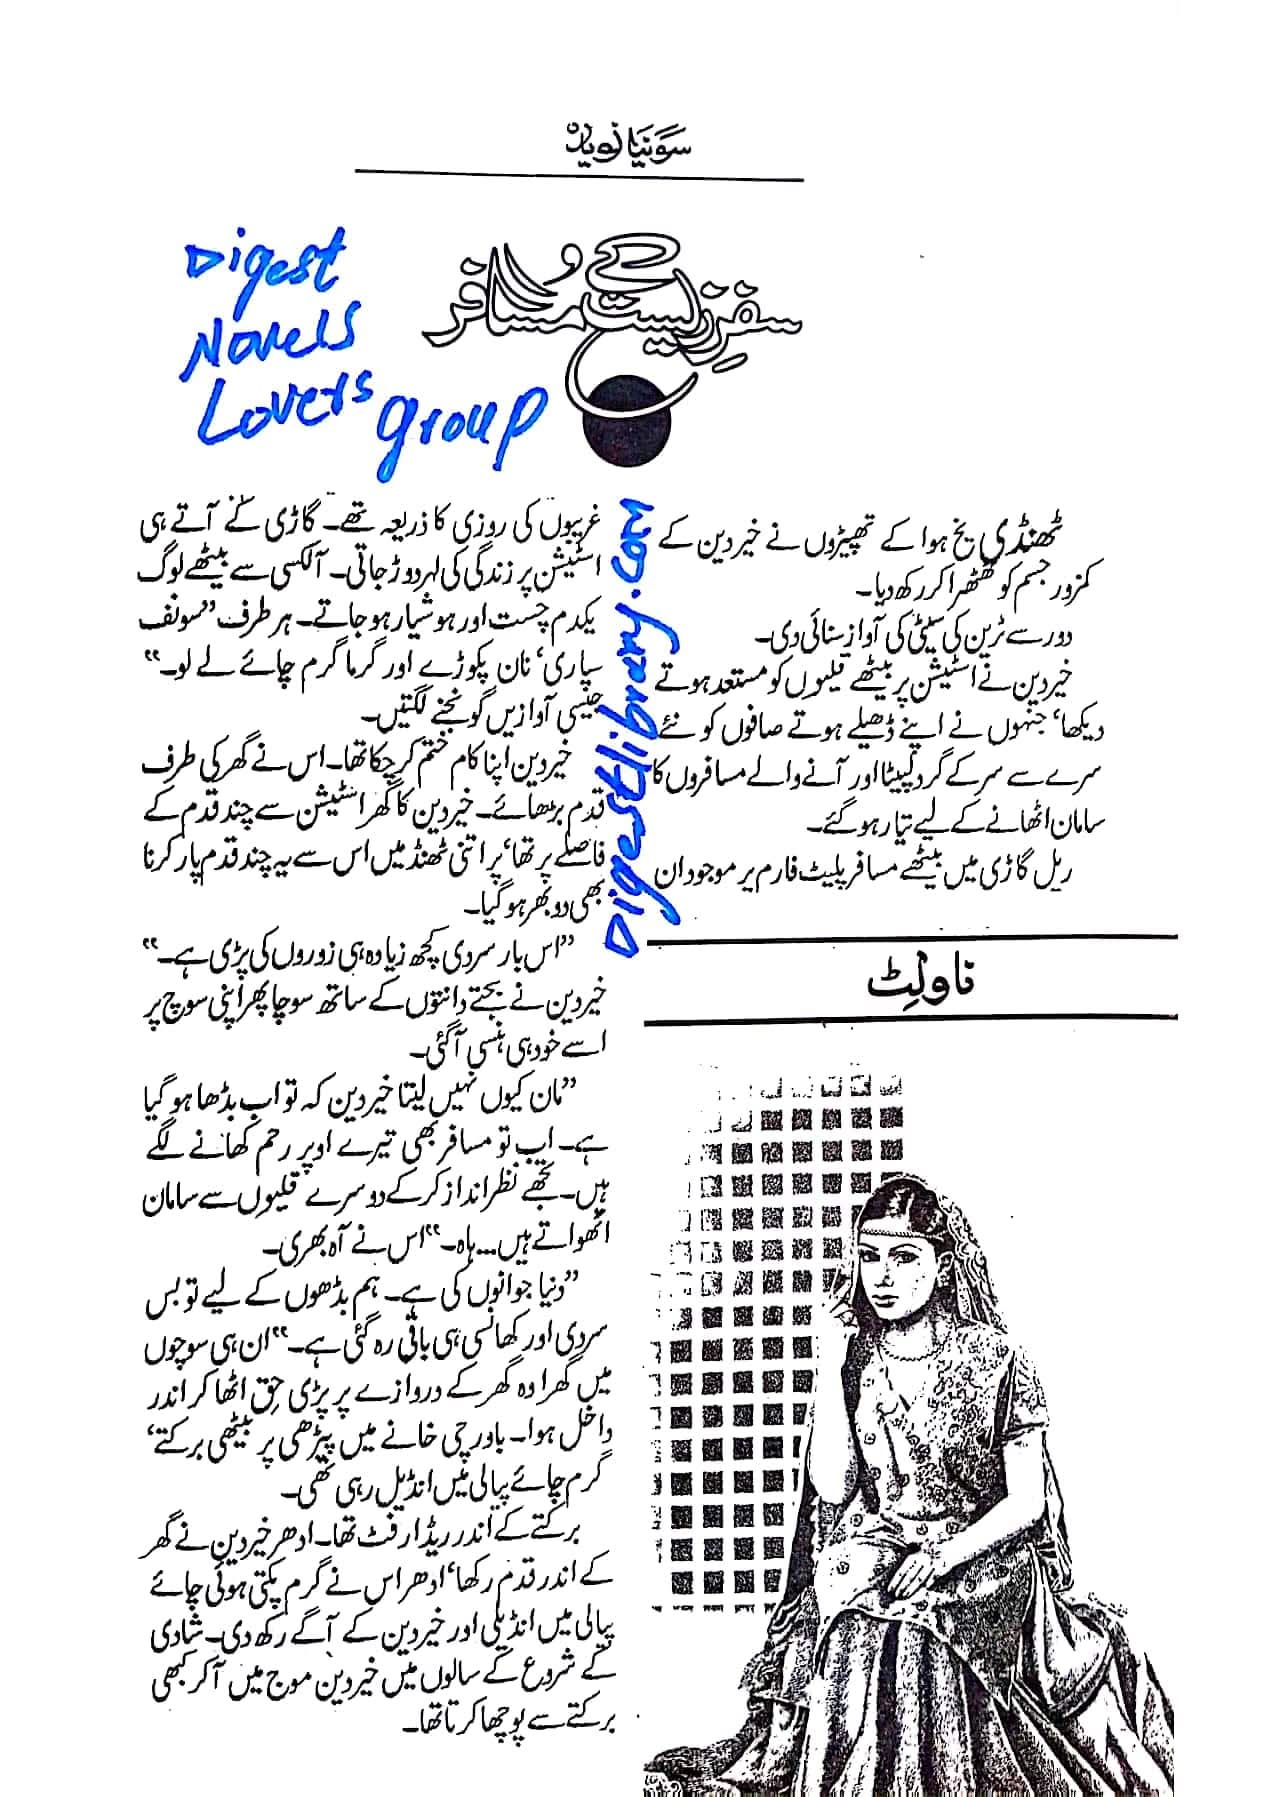 سونیا نوید
سفر زیست کے مسافر
Digest
Novels
Lovers group
Digestlibrary.com
ٹھنڈی یخ ہوا کے تھپیڑوں نے خیردین کے
کمزور جسم کو ٹھٹھرا کر رکھ دیا۔
دور سے ٹرین کی سیٹی کی آواز سنائی دی۔
خیردین نے اسٹیشن پر بیٹھے قلیوں کو مستعد ہوتے
دیکھا‘ جنہوں نے اپنے ڈھیلے ہوتے صافوں کو نئے
سرے سے سر کے گرد لپیٹا اور آنے والے مسافروں کا
سامان اٹھانے کے لیے تیار ہو گئے۔
ریل گاڑی میں بیٹھے مسافر پلیٹ فارم پر موجود ان
ناولٹ
غریبوں کی روزی کا ذریعہ تھے۔ گاڑی کے آتے ہی
اسٹیشن پر زندگی کی لہر دوڑ جاتی۔ آلکسی سے بیٹھے لوگ
یکدم چست اور ہوشیار ہو جاتے۔ ہر طرف ”سونف
سپاری‘ نان پکوڑے اور گرما گرم چائے لے لو۔“
جیسی آوازیں گونجنے لگتیں۔
خیردین اپنا کام ختم کر چکا تھا۔ اس نے گھر کی طرف
قدم بڑھائے۔ خیردین کا گھر اسٹیشن سے چند قدم کے
فاصلے پر تھا‘ پر اتنی ٹھنڈ میں اس سے یہ چند قدم پار کرنا
بھی دوبھر ہو گیا۔
”اس بار سردی کچھ زیادہ ہی زوروں کی پڑی ہے۔“
خیردین نے بجتے دانتوں کے ساتھ سوچا پھر اپنی سوچ پر
اسے خود ہی ہنسی آ گئی۔
”مان کیوں نہیں لیتا خیردین کہ تو اب بڈھا ہو گیا
ہے۔ اب تو مسافر بھی تیرے اوپر رحم کھانے لگے
ہیں۔ تجھے نظر انداز کر کے دوسرے قلیوں سے سامان
اٹھواتے ہیں... ہاہ۔“ اس نے آہ بھری۔
”دنیا جوانوں کی ہے۔ ہم بڈھوں کے لیے تو بس
سردی اور کھانسی ہی باقی رہ گئی ہے۔“ ان ہی سوچوں
میں گھرا وہ گھر کے دروازے پر پڑی چق اٹھا کر اندر
داخل ہوا۔ باورچی خانے میں پیڑھی پر بیٹھی برکتے‘
گرم چائے پیالی میں انڈیل رہی تھی۔
برکتے کے اندر ریڈار فٹ تھا۔ ادھر خیردین نے گھر
کے اندر قدم رکھا‘ ادھر اس نے گرم پکتی ہوئی چائے
پیالی میں انڈیلی اور خیردین کے آگے رکھ دی۔ شادی
کے شروع کے سالوں میں خیردین موج میں آ کر کبھی
برکتے سے پوچھا کرتا تھا۔